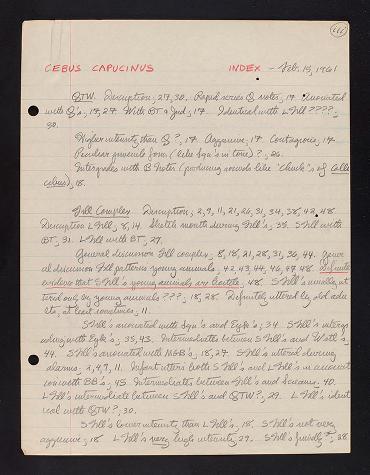 CEBUS CAPUCINUS INDEX - Feb. 15, 1961
QTW. Description, 27, 30. Rapid series Q notes, 17. Associated
with Q's, 17, 27. With BT & Jud, 17. Identical with L Trill ????,
30.
Higher intensity than Q?, 17. Aggressive, 17. Contagious, 17.
Peculiar gurgle form (like Squ's in tone)?, 26.
Intergrades with B Notes (producing sounds like "Chuk"s of Calli
cebus), 18.
Trill Complex. Description, 2, 9, 11, 21, 26, 31, 34, 38, 42, 48.
Description L Trill, 8, 14. Sketch mouth during Trill's, 35. S Trill with
BT, 31. L Trill with BT, 27.
General discussion Trill complex, 8, 18, 21, 28, 31, 36, 44. Gener
al discussion Trill patterns young animals, 42, 43, 44, 46, 47, 48. Definite
evidence that S Trill's young animals are hostile, 48. S Trill's usually ut
tered only by young animals???, 18, 28. Definitely uttered by old adu
lts, at least sometimes, 11.
S Trill's associated with Squ's and Eyk's, 34. S Trill's intergra
ding with Eyk's, 35, 43. Intermediates between S Trill's and Wail's,
44. S Trill's associated with MGB's, 18, 27. S Trill's uttered during
alarm, 2, 4, 9, 11. Infant utters both S Trill's and L Trill's in associat
ion with BB's, 45. Intermediates between Trill's and Screams, 40.
L Trill's intermediate between S Trill's and QTW?, 29. L Trill's ident
ical with QTW?, 30.
S Trill's lower intensity than L Trill's, 18. S Trill's not very
aggressive, 18. L Trill's very high intensity, 29. S Trill's 28.